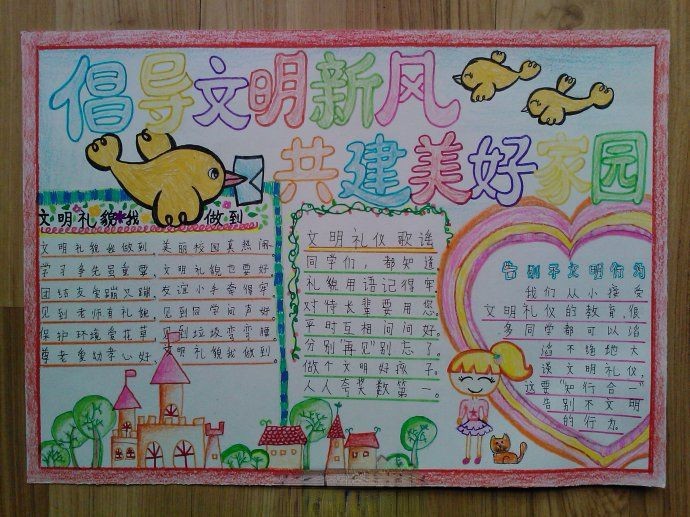 倡导文明新风
共建美好家园
文明礼貌我做到
文明礼貌我做到，美丽校园真热闹。
学习争先最重要，文明礼貌也要好。
团结友爱蹦又蹦，友谊小手牵得牢
见到老师有礼貌，见到同学问声好
保护环境爱花草，见到垃圾弯弯腰
尊老爱幼孝心好，文明礼貌我做到。
文明礼仪歌谣
同学们，都知道，
礼貌用语记得牢
对待长辈要用您。
平时互相问问好。
分别“再见”别忘了。
做个文明好孩子。
人人夸奖数第一。
告别不文明行为
我们从小接受
文明礼仪的教育，很
多同学都可以滔
滔不绝地大
谈文明礼仪，
这要“知行合一”
告别不文明
的行为。